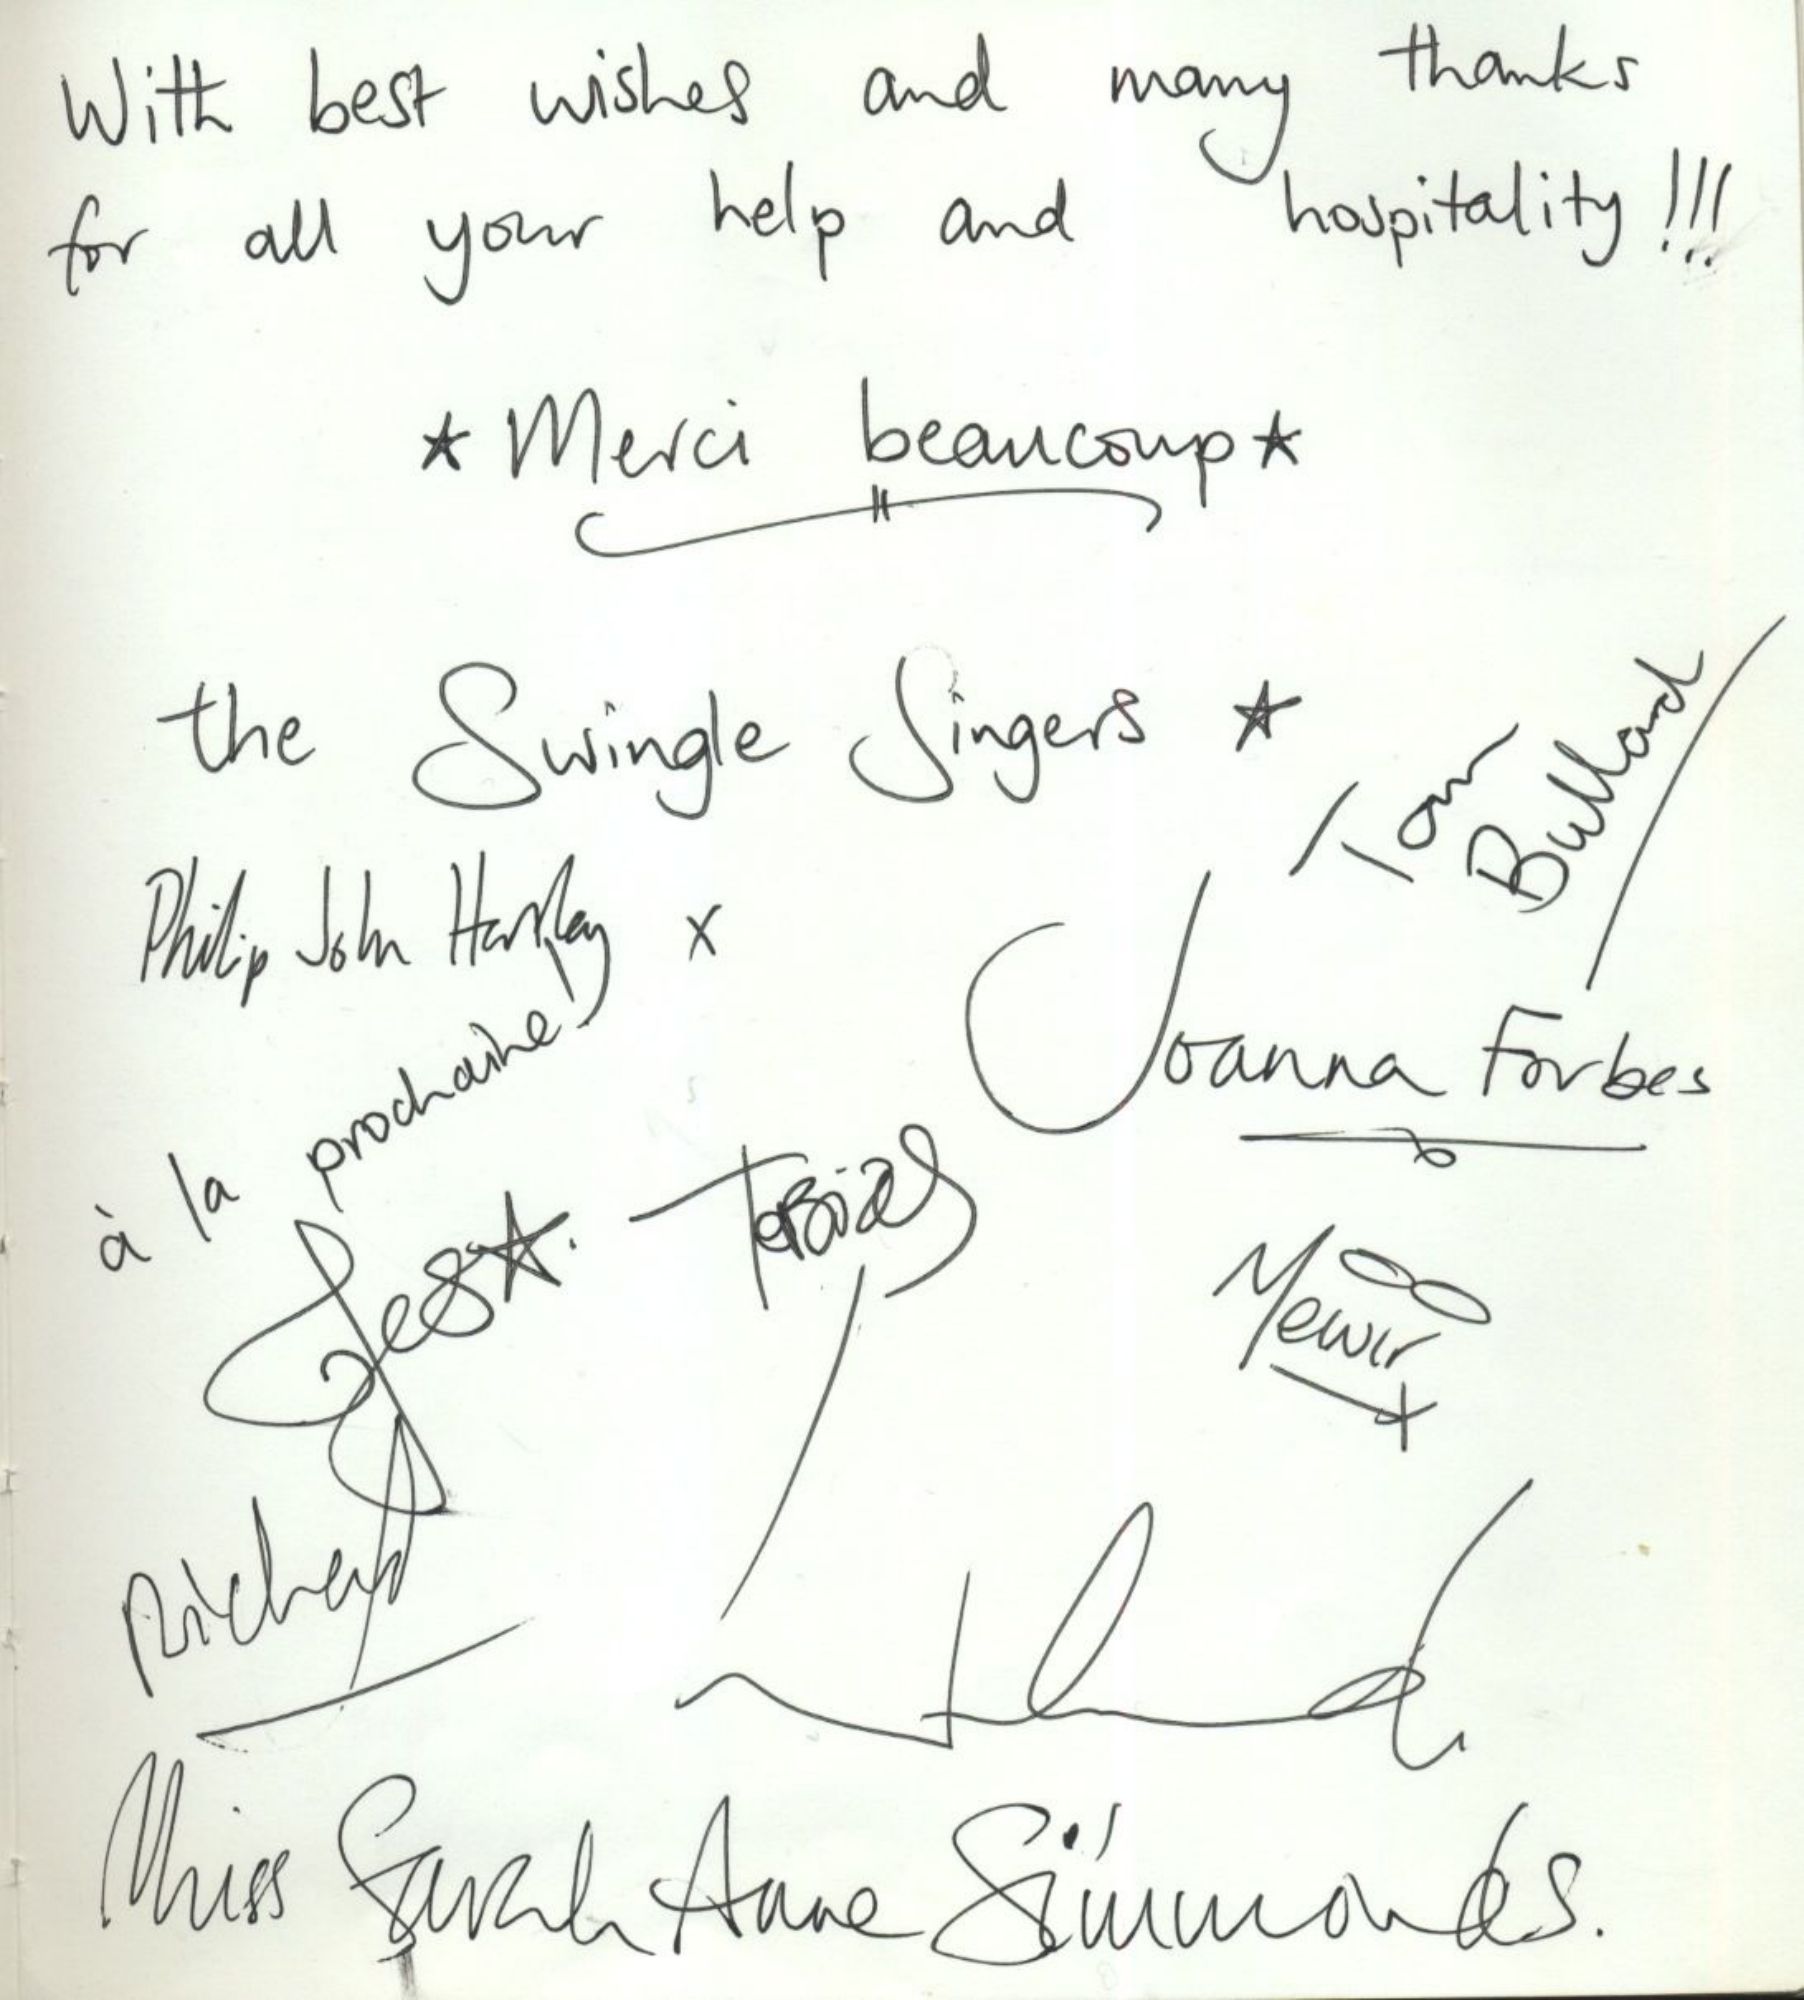 With best wishes and many thanks
for all your help and hospitality!!!
★ Merci beaucoup ★
the Swingle Singers ★
Tom
Bullard
Philip John Hartley x
Joanna Forbes
à la prochaine!
Jes★.
Tobias
Meinir
Richard
Miss Sarah Anne Simmonds.